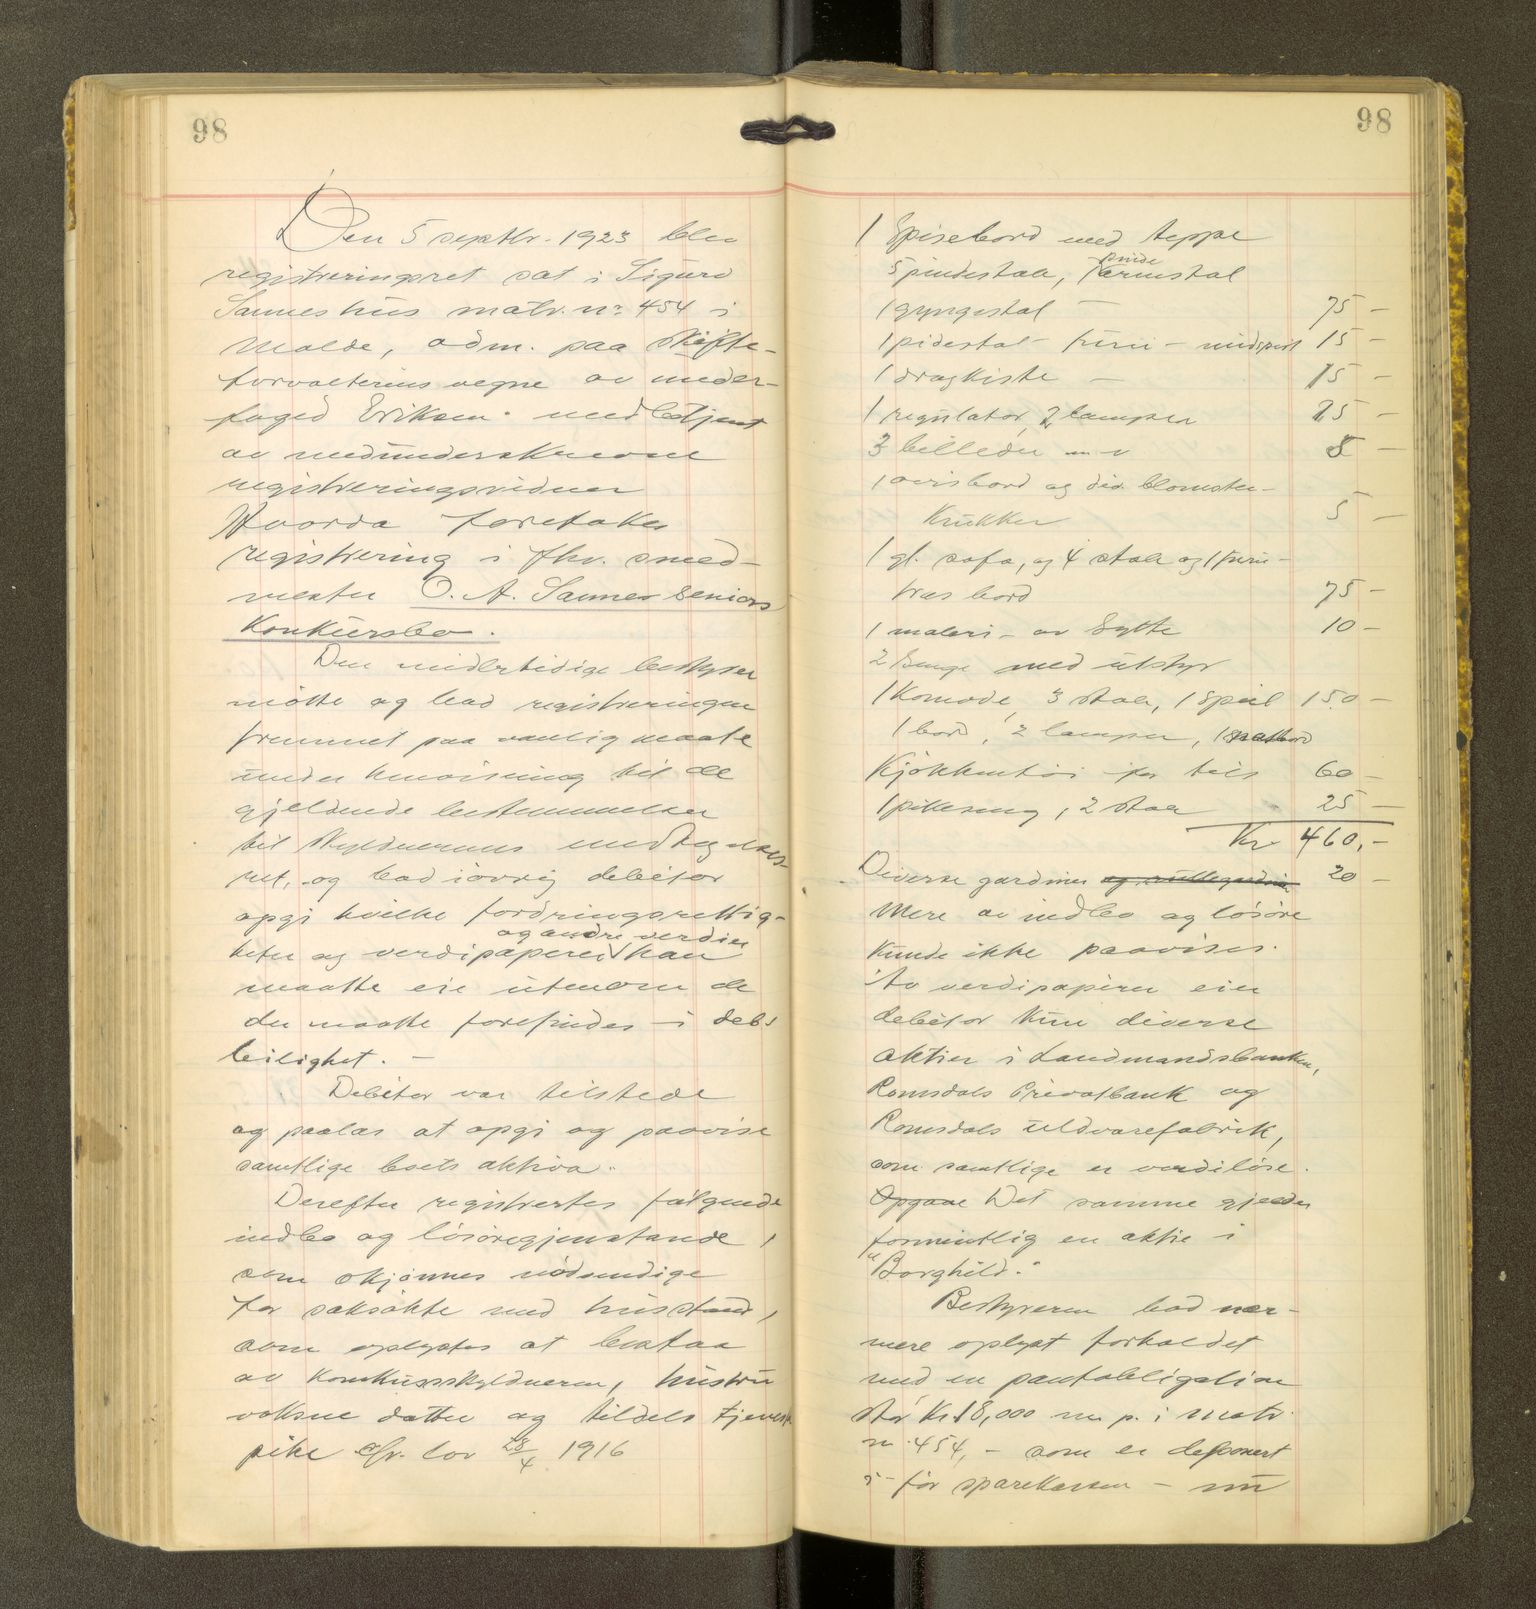 98
Den 5 septbr. 1923 blev
registreringsret sat i Sigurd
Sannes hus matr. nr 454 i
Molde, adm. paa skifte-
forvalterens vegne av under-
foged Eriksen. med betjent
av medunderskrevne
registreringsvidner
Hvorda foretokes
registrering i fhv. smed-
mester O. A. Sannes seniors
Konkursbo.
Den midlertidige bestyrer
møtte og bad registreringen
fremmet paa vanlig maate
under henvisning til de
gjeldende bestemmelser
til skyldnerens
ret, og bad iøvrig debitor
opgi hvilke fordringsrettig-
og andre verdier
heter og verdipapirer han
maatte eie utenom de
der maatte forefindes i dets
leilighet. -
Debitor var tilstede
og paalas at opgi og paavise
samtlige boets aktiva.
Derefter registrertes følgende
indbo og løsøregjenstande,
som skjønnes nødvendige
for saksøkte med husstand,
som oplystes at bestaa
av konkursskyldneren, hustru
voksne datter og tildels tjeneste
pike cfr. lov 28/4 1916
98
1 Spisebord med teppe
pinde
5 pindestole, 1 armstol
1 gyngestol - 75 -
1 pidestal - furu - 15 -
1 dragkiste - 15 -
1 regulator, 2 lamper 25 -
3 billeder 5 -
1 avisbord og div. blomster-
krukker 5 -
1 gl. sofa, og 4 stole og 1 furu-
træs bord 75 -
1 maleri - av Sylte 10 -
2 senge med utstyr
1 Komode, 3 stole, 1 speil 150 -
1 bord, 2 lamper, 1 natbord
Kjøkkentøi for tils 60 -
1 pikeseng, 2 stole 25 -
Kr. 460,-
Diverse gardiner og rullegardiner 20 -
Mere av indbo og løsøre
kunde ikke paavises.
Av verdipapirer eier
debitor kun diverse
aktier i Landmandsbanken,
Romsdals Privatbank og
Romsdals uldvarefabrik,
som samtlige er verdiløse.
Opgave Det samme gjelder
formentlig en aktie i
"Borghild."
Bestyreren bad nær-
mere oplyst forholdet
med en pantobligation
stor Kr. 18,000 m. p. i matr.
nr. 454, - som er deponert
i - for sparekassen - nu